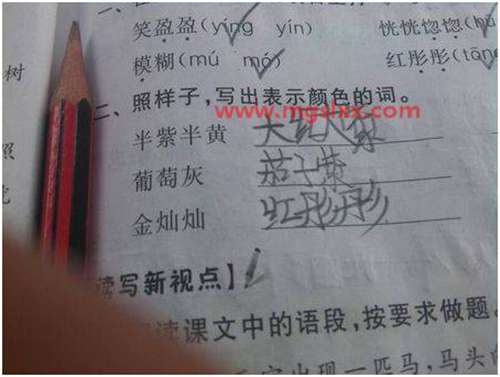 笑盈盈(yíng yín) 恍恍惚惚(
模糊(mú mó) 红彤彤(
树
二、照样子,写出表示颜色的词。
www.mgslxx.com
半紫半黄
葡萄灰 茄子紫
照
金灿灿 红彤彤
读写新视点】
读课文中的语段,按要求做题。
出现一匹马,马头